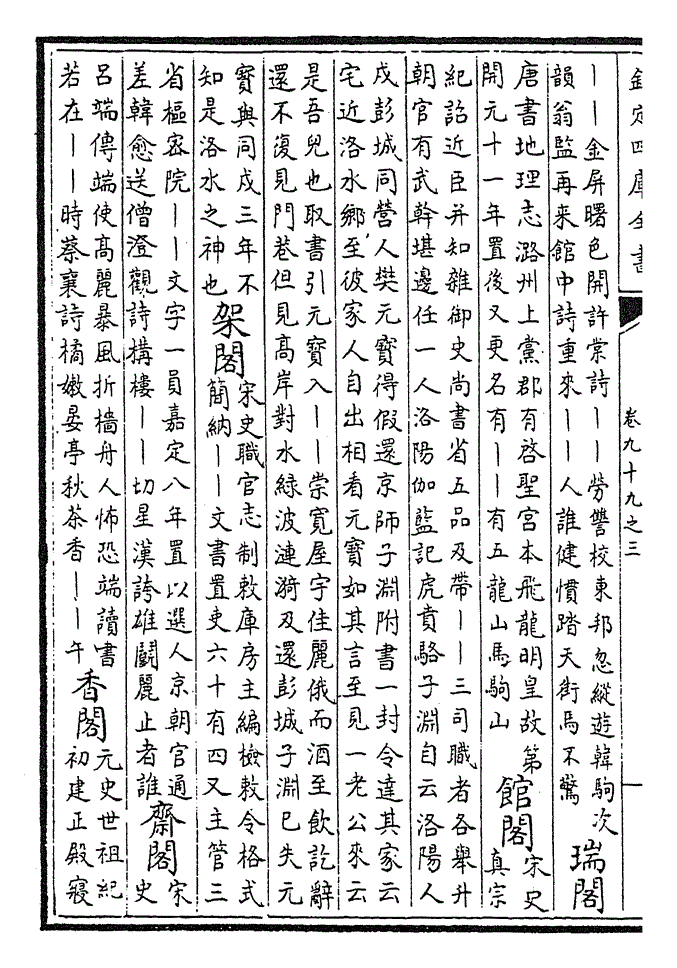 欽定四庫全書
卷九十九之三
——金屏曙色開許棠詩——勞讐校東邦忽縱遊韓駒次
韻翁監再來館中詩重來——人誰健慣踏天街馬不驚
瑞閣
唐書地理志潞州上黨郡有啓聖宮本飛龍明皇故第
開元十一年置後又更名有——有五龍山馬駒山
館閣
宋史
真宗
紀詔近臣并知雜御史尚書省五品及帶——三司職者各舉升
朝官有武幹堪邊任一人洛陽伽藍記虎賁駱子淵自云洛陽人
戍彭城同營人樊元寶得假還京師子淵附書一封令達其家云
宅近洛水鄉至彼家人自出相看元寶如其言至見一老公來云
是吾兒也取書引元寶入——崇寬屋宇佳麗俄而酒至飲訖辭
還不復見門巷但見高岸對水綠波漣漪及還彭城子淵已失元
寶與同戍三年不
知是洛水之神也
架閣
宋史職官志制敕庫房主編檢敕令格式
簡納——文書置吏六十有四又主管三
省樞密院——文字一員嘉定八年置以選人京朝官通
差韓愈送僧澄觀詩搆樓——切星漢誇雄鬭麗止者誰
齋閣
宋
史
呂端傳端使高麗暴風折檣舟人怖恐端讀書
若在——時蔡襄詩橘嫩晏亭秋茶香——午
香閣
元史世祖紀
初建正殿寢